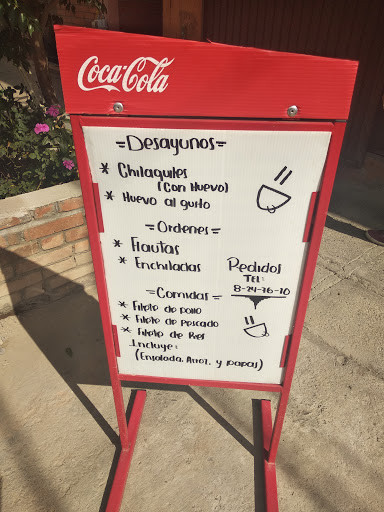 Coca-Cola
=Desayunos=
* Chilaquiles
(Con Huevo)
* Huevo al gusto
=Ordenes=
* Flautas
* Enchiladas
Pedidos
Tel:
8-24-76-10
=Comidas=
* Filete de pollo
* Filete de pescado
* Filete de Res
Incluye:
(Ensalada, Arroz, y papas)